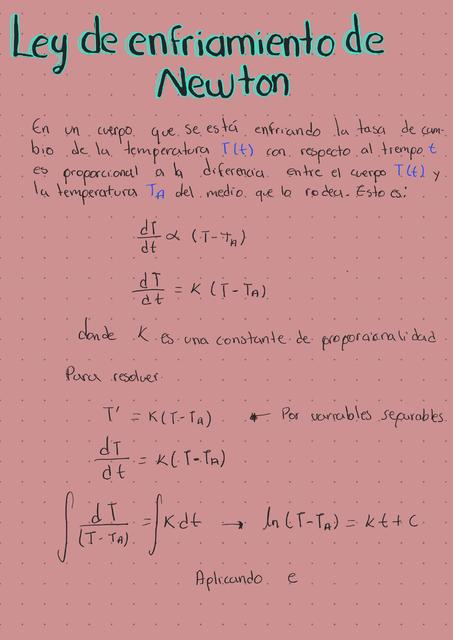 Ley de enfriamiento de
Newton
En un cuerpo que se está enfriando la tasa de cam-
bio de la temperatura T(t) con respecto al tiempo t
es proporcional a la diferencia entre el cuerpo T(t) y
la temperatura TA del medio que lo rodea. Esto es:
dT/dt ∝ (T-TA)
dT/dt = K (T-TA)
donde K es una constante de proporcionalidad
Para resolver
T' = K(T-TA) ← Por variables separables.
dT/dt = K(T-TA)
∫ dT/(T-TA) = ∫ K dt → ln(T-TA) = kt + C
Aplicando e